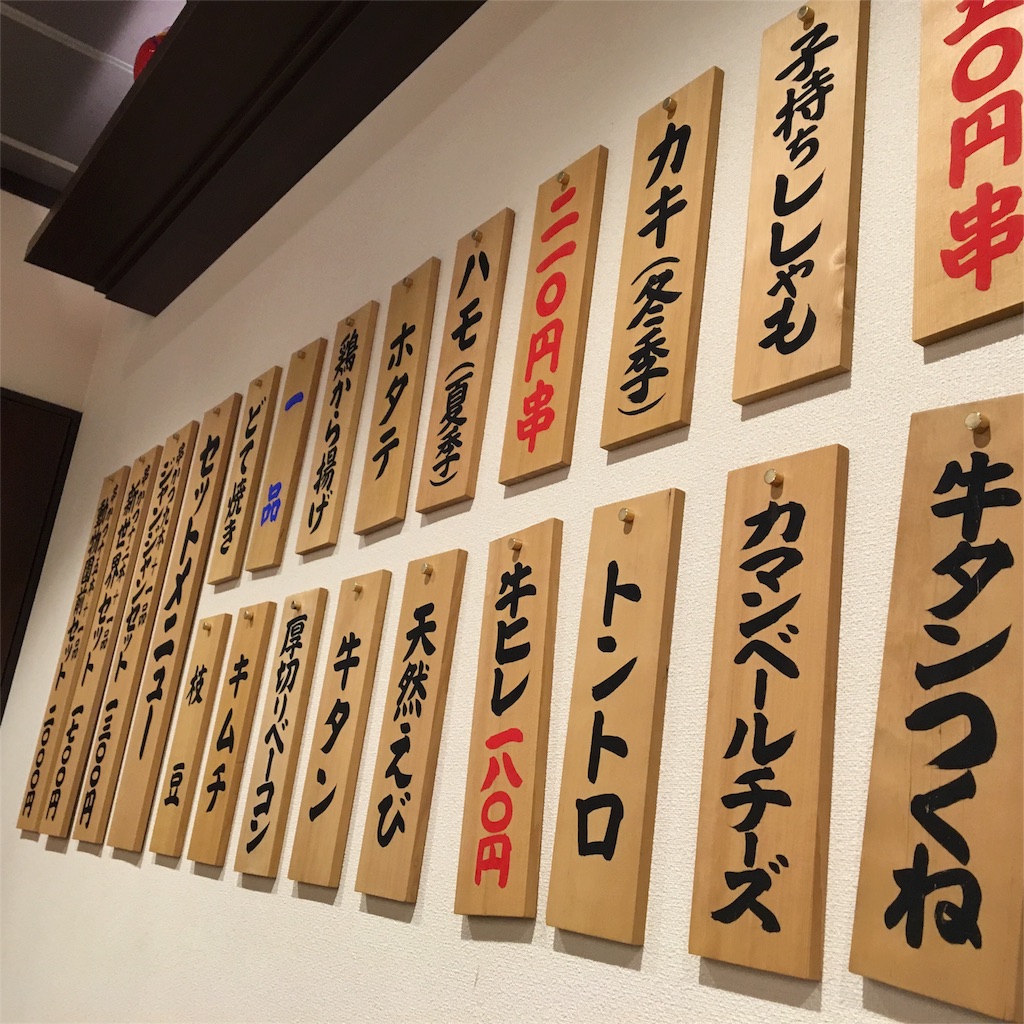 五〇円串
子持ちししゃも
カキ(冬季)
二一〇円串
ハモ(夏季)
ホタテ
鶏から揚げ
一品
どて焼き
牛タンつくね
カマンベールチーズ
トントロ
牛ヒレ一八〇円
天然えび
牛タン
厚切りベーコン
キムチ
枝豆
セットメニュー
ジャンジャンセット 一三〇〇円
新世界セット 一七〇〇円
動物園前セット 二一〇〇円